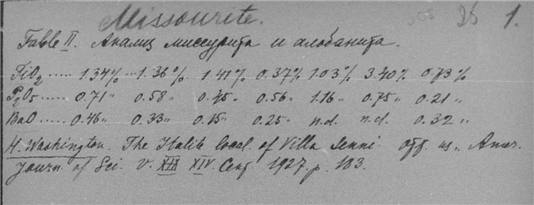 Missourite. 25 1.
Table II. Анализ миссурита и албанита.
TiO2 ..... 1.34% ... 1.36% 1.41% 0.37% 1.03% 3.40% 0.73%
P2O5 ..... 0.71" 0.58" 0.45" 0.56" 1.16" 0.75" 0.21"
BaO ..... 0.46" 0.33" 0.15" 0.25" n.d. n.d. 0.32"
H. Washington. The Italite Local. of Villa Senni Amer.
Journ. of Sci. V. XIII XIV. 1927. p. 183.